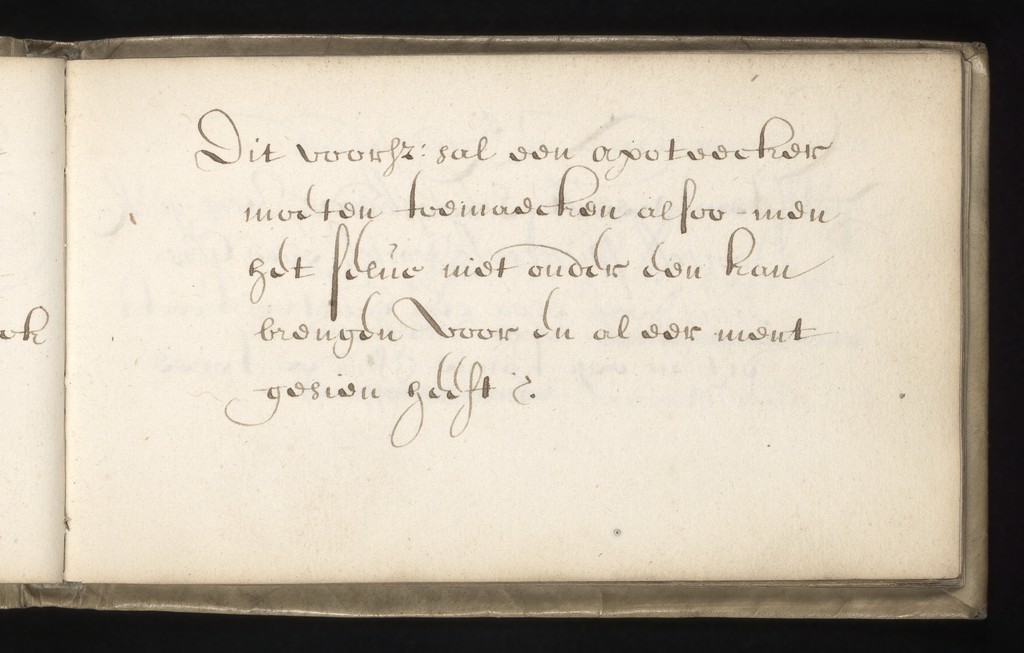 Dit voorsz: sal een apoteecker
moeten toemaecken alsoo men
het selue niet onder een kan
brengen voor en al eer ment
gesien heeft
ok